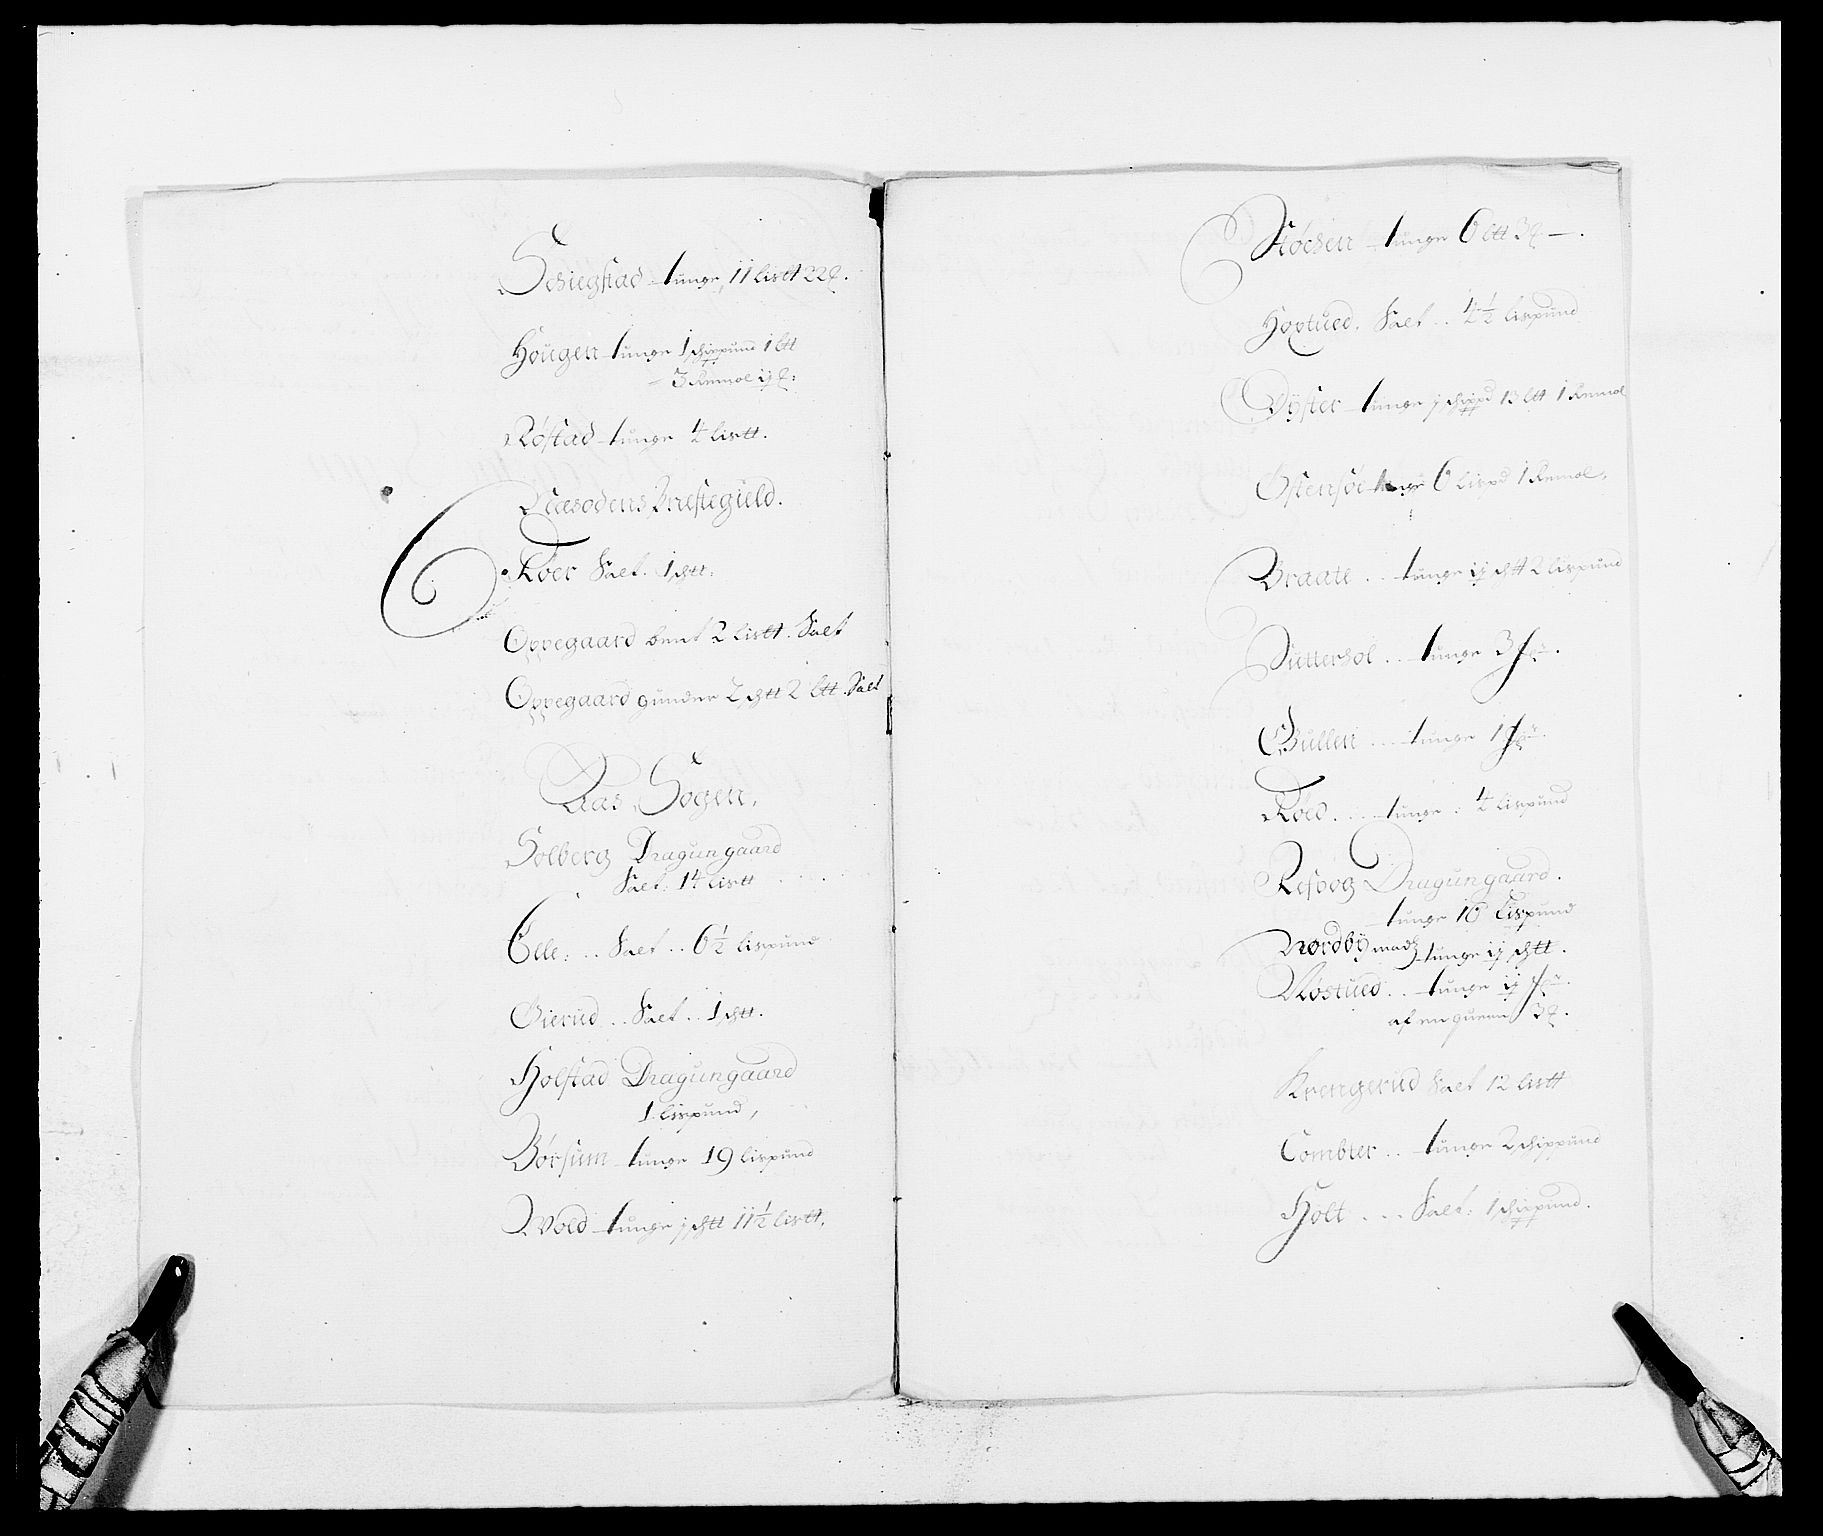 Schiegstad tunge 11 listt 22 q.
Hougen tunge 1 schippund 1 ltt
3 Remol ij q:
Røstad tunge 4 listt.
Næsodens Præstegield.
Røer Salt. 1 schtt:
Oppegaard bent 2 listt. Salt
Oppegaard gunder 2 schtt 2 ltt. Salt
Aas Sogen,
Solberg Dragungaard
Salt: 14 listt
Elle: .. Salt .. 6½ lispund
Gierud .. Salt .. 1 schtt.
Holstad Dragungaard
1 lispund,
Børsum tunge 19 lispund
Wold tunge j schtt 11½ listt.
Støchen tunge 6 ltt 3 q —.
Hogtued. Salt .. 4½ lispund
Dyster tunge j schippd 13 ltt 1 Remol
Østensøe tunge 6 lispd 1 Remol.
Braate ... tunge ij schtt 2 lispund
Sutterhol .. tunge 3 .
Gullen ... tunge 1 .
Røed .... tunge : 4 lispund
Respog Dragungaard.
tunge 16 Lispund
Nordby mads tunge ij schtt.
Møstued .. tunge ij .
af en quern 3 q.
Krengerud Salt 12 listt
Tombter .. tunge 2 schippund
Holt ... Salt: 1 schippund.